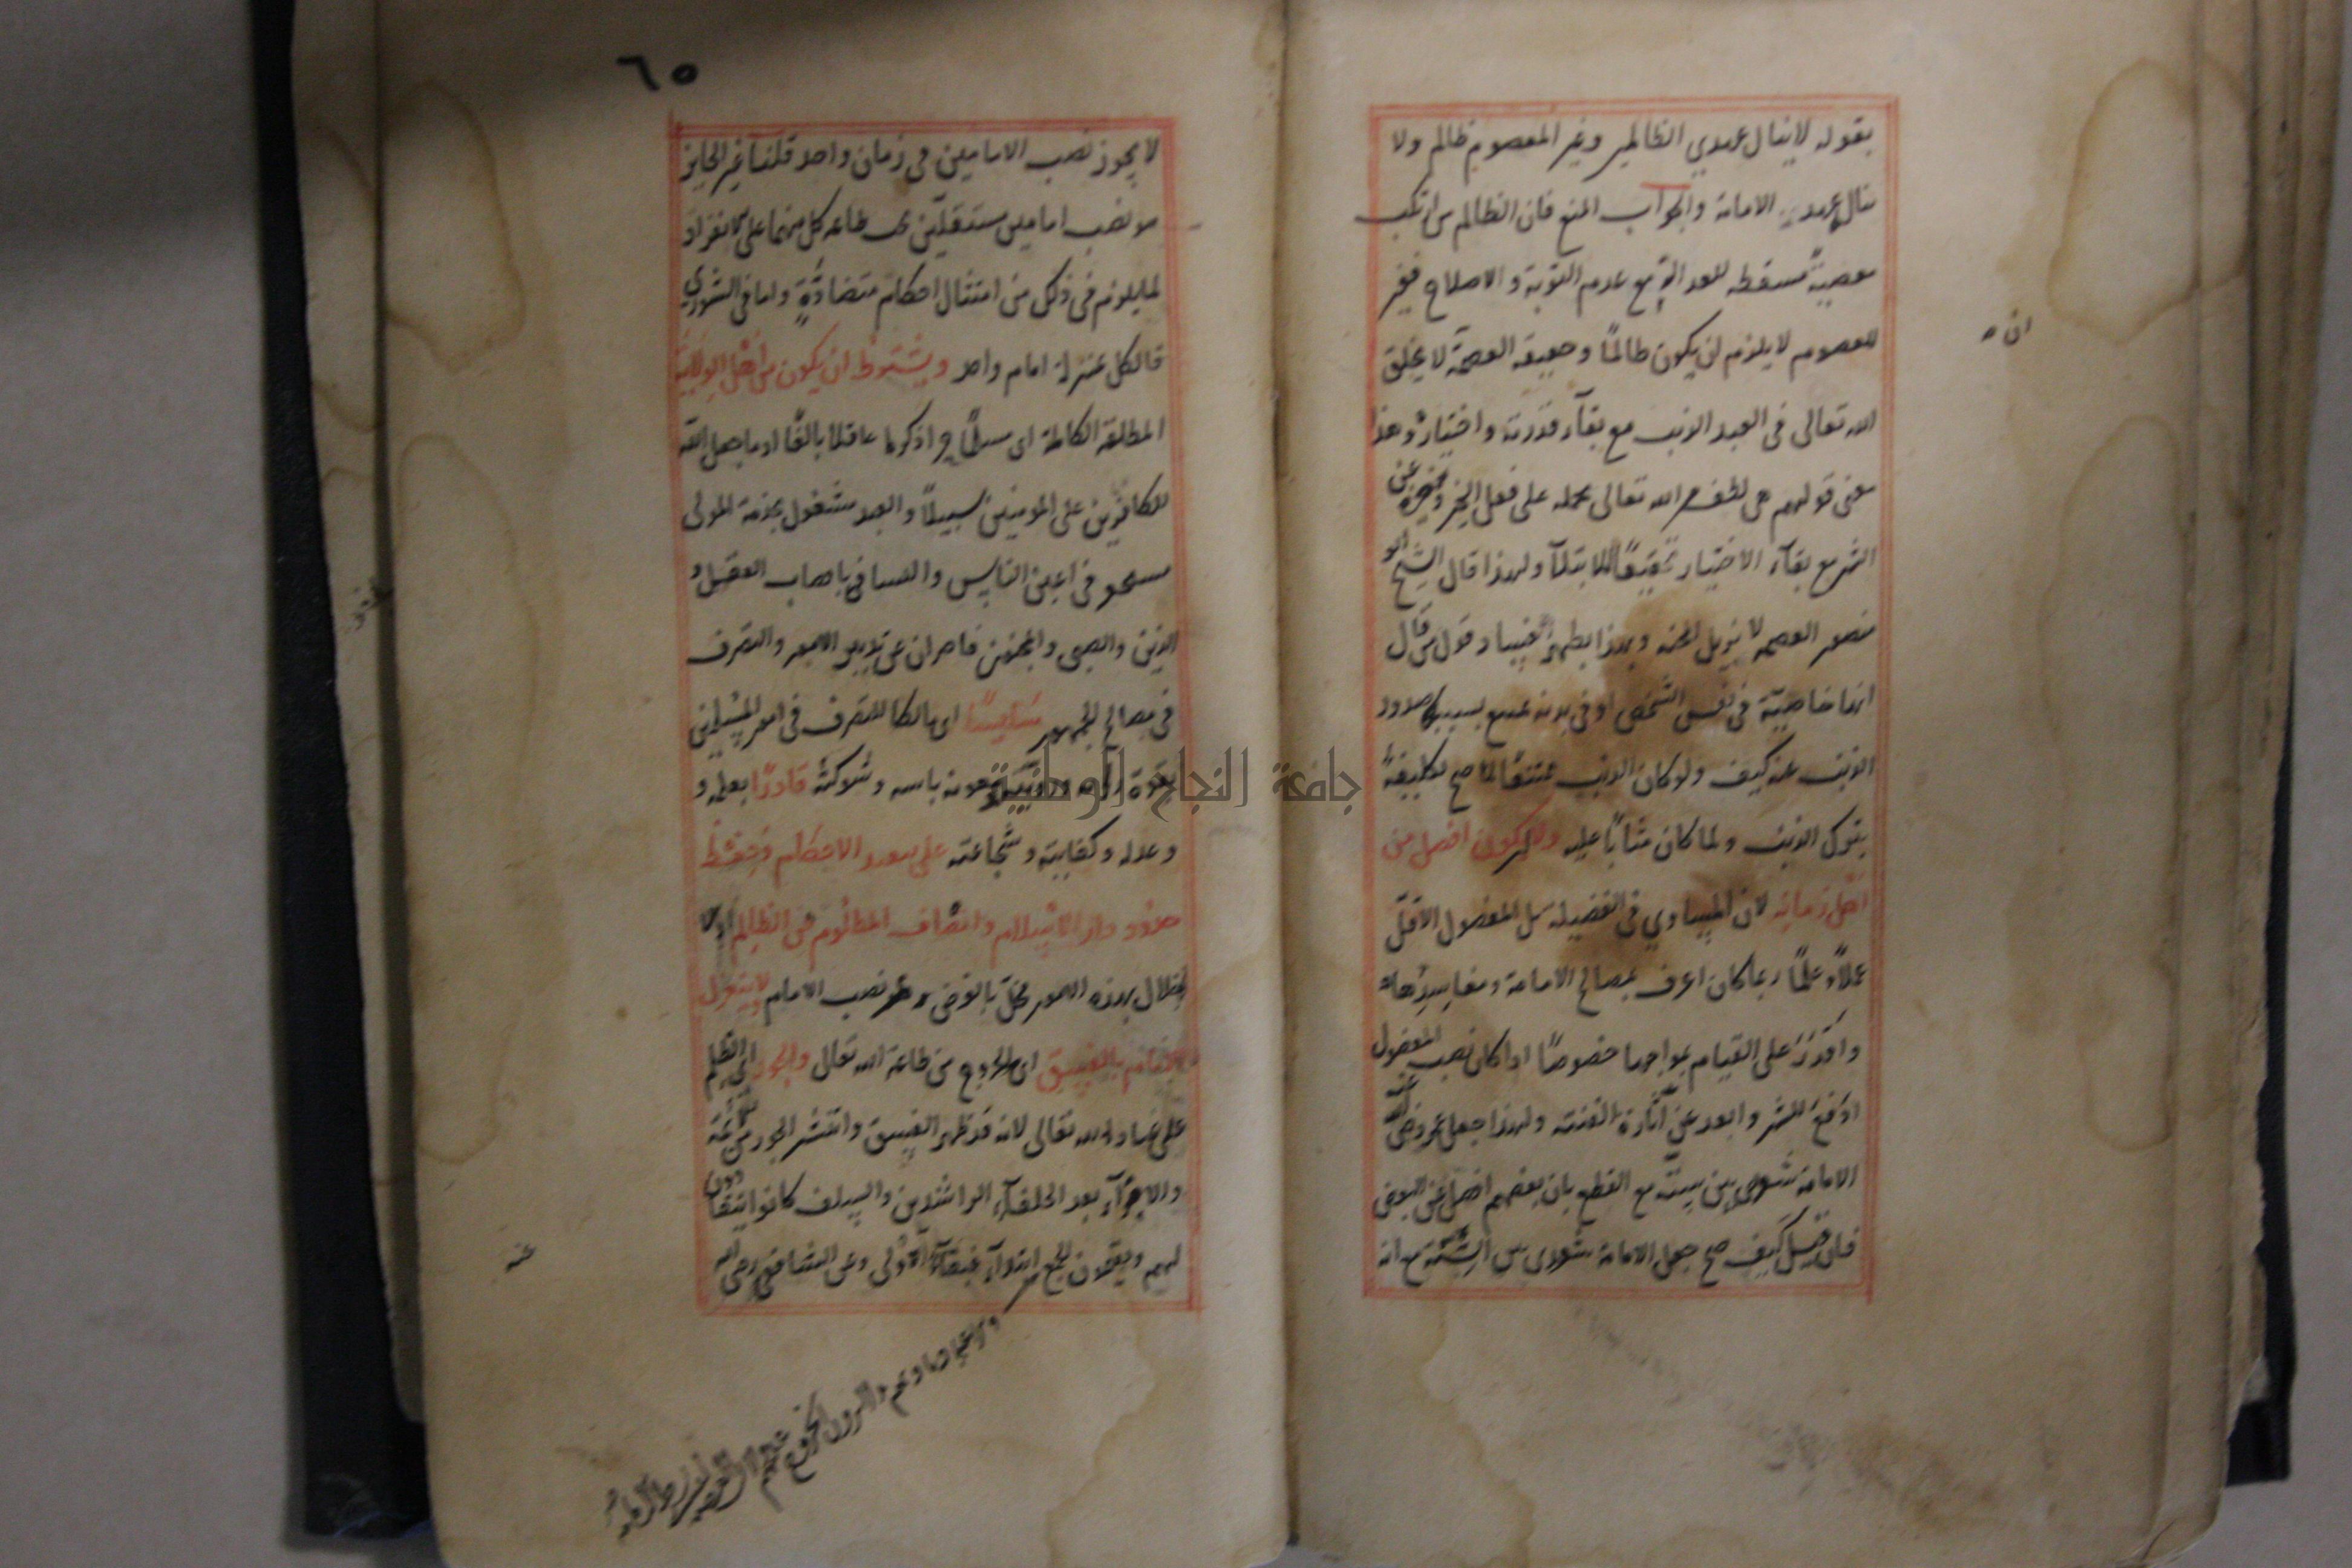 بقوله لا ينال عهدي الظالمين وغير المعصوم ظالم ولا
ينال عهد الامامة والجواب المنع فان الظالم من ارتكب
معصية مسقطة للعدالة مع عدم التوبة والاصلاح فغير
المعصوم لا يلزم ان يكون ظالمًا وحقيقة العصمة لا يخلق
الله تعالى في العبد الذنب مع بقآء قدرته واختياره وهذا
معنى قولهم هي لطف من الله تعالى يحمله على فعل الخير ويزجره عن
الشر مع بقآء الاختيار تحقيقًا للابتلآء ولهذا قال الشيخ ابو
منصور العصمة لا يزيل المحنة وبهذا يظهر فساد قول من قال
انها خاصية في نفس الشخص او في بدنه يمتنع بسببها صدور
الذنب عنه كيف ولو كان الذنب ممتنعًا لما صح تكليفه
بترك الذنب ولما كان مثابًا عليه ولا يكون افضل من
اهل زمانه لان المساوي في الفضيلة بل المفضول الاقل
عملًا وعلمًا ربما كان اعرف بمصالح الامامة ومفاسدها
واقدر على القيام بمواجبها خصوصًا اذا كان نصب المفضول
ادفع للشر وابعد عن اثارة الفتنة ولهذا جعل عمر رضي الله عنه
الامامة شورى بين ستة مع القطع بان بعضهم افضل من البعض
فان قيل كيف صح جعل الامامة شورى بين الستة مع انه
ان
٦٥
لا يجوز نصب الامامين في زمان واحد قلنا غير الجايز
هو نصب امامين مستقلين تجب طاعة كل منهما على الانفراد
لما يلزم في ذلك من امتثال احكام متضادة واما في الشورى
فالكل بمنزلة امام واحد ويشترط ان يكون من اهل الولاية
المطلقة الكاملة اى مسلمًا حرا ذكرا عاقلا بالغًا اذ ما جعل الله
للكافرين على المومنين سبيلًا والعبد مشغول بخدمة المولى
مستحقر في اعين الناس والنساء ناقصات العقل و
الدين والصبي والمجنون قاصران عن تدبير الامور والتصرف
في مصالح الجمهور سايسًا اى مالكا للتصرف في امور المسلمين
بقوة رأيه ورويته ومعونة باسه وشوكته قادرًا بعلمه و
وعدله وكفايته وشجاعته على تنفيذ الاحكام وحفظ
حدود دار الاسلام وانصاف المظلوم من الظالم اذ
الاخلال بهذه الامور مخلّ بالغرض من نصب الامام ولا ينعزل
الامام بالفسق اى الخروج من طاعة الله تعالى والجور اى الظلم
على عباد الله تعالى لانه قد ظهر الفسق وانتشر الجور من الائمة
والامرآء بعد الخلفآء الراشدين والسلف كانوا ينقادون
لهم ويقيمون الجمع
وعن الشافعي رضي الله
عنه
جامعة النجاح الوطنية